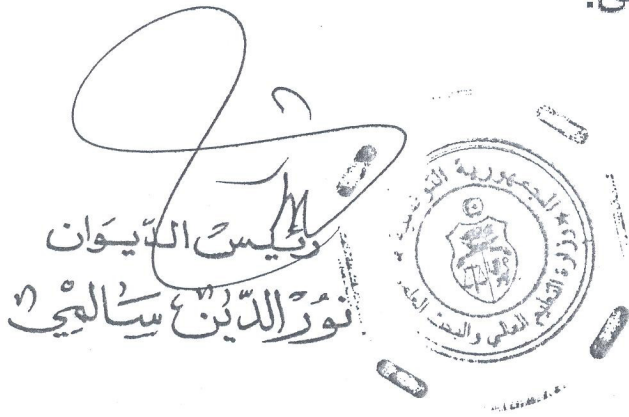 رئيس الديوان
نور الدّين سالمي
الجمهورية التونسية
وزارة التعليم العالي والبحث العلمي